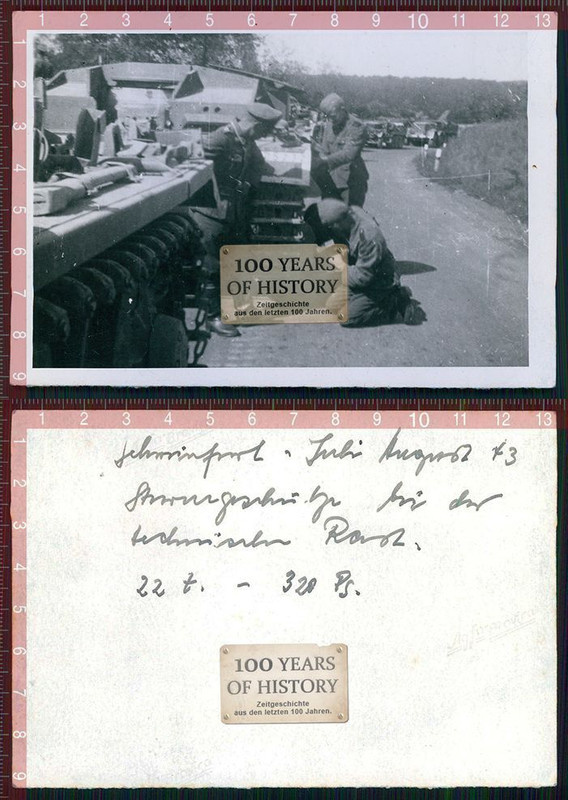 0 1 2 3 4 5 6 7 8 9 10 11 12 13
1
2
3
4
5
6
7
8
9
100 YEARS
OF HISTORY
Zeitgeschichte
aus den letzten 100 Jahren.
0 1 2 3 4 5 6 7 8 9 10 11 12 13
1
2
3
4
5
6
7
8
9
Schweinfurt - Juli August 43
Sturmgeschütze bei der
technischen Rast.
22 t. - 320 Ps.
100 YEARS
OF HISTORY
Zeitgeschichte
aus den letzten 100 Jahren.